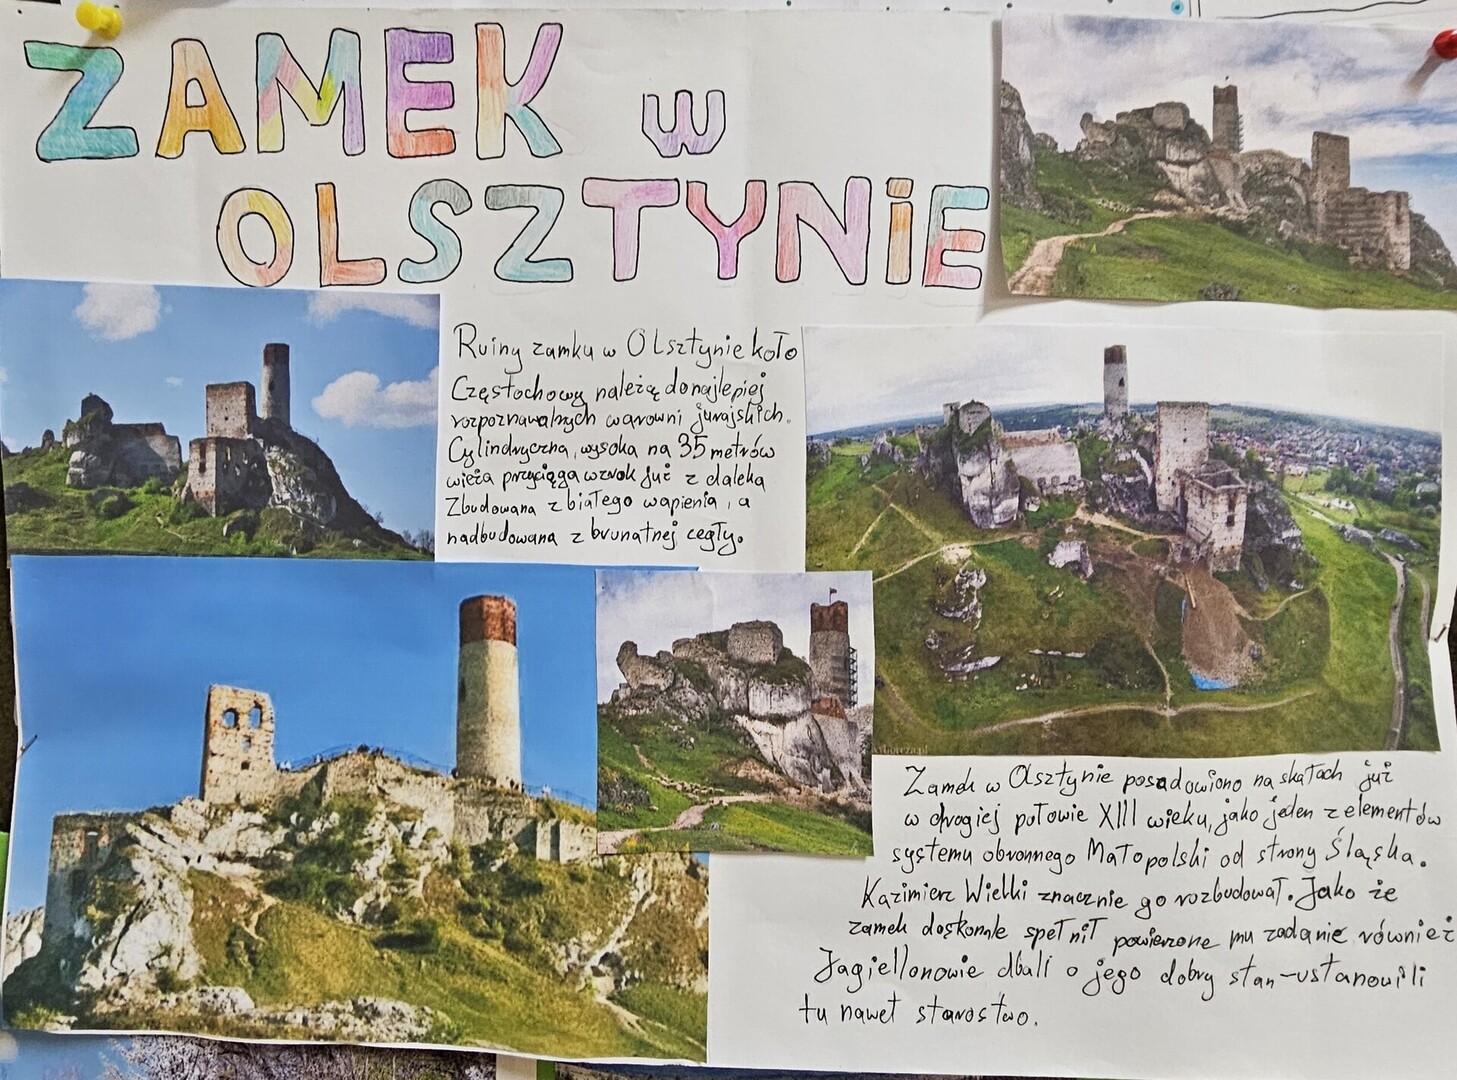 ZAMEK w
OLSZTYNIE
Ruiny zamku w Olsztynie koło
Częstochowy należą do najlepiej
rozpoznawalnych warowni jurajskich.
Cylindryczna, wysoka na 35 metrów
wieża przyciąga wzrok już z daleka
Zbudowana z białego wapienia, a
nadbudowana z brunatnej cegły.
Zamek w Olsztynie posadowiono na skałach już
w drugiej połowie XIII wieku, jako jeden z elementów
systemu obronnego Małopolski od strony Śląska.
Kazimierz Wielki znacznie go rozbudował. Jako że
zamek doskonale spełnił powierzone mu zadanie również
Jagiellonowie dbali o jego dobry stan-ustanowili
tu nawet starostwo.